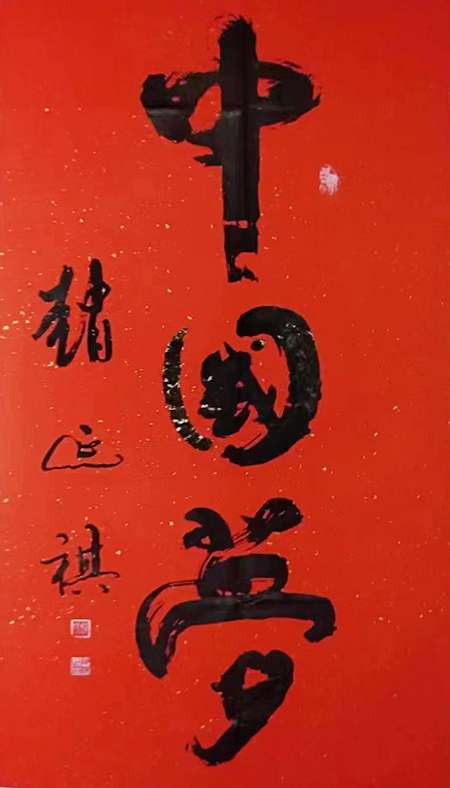 中國夢
趙延祺